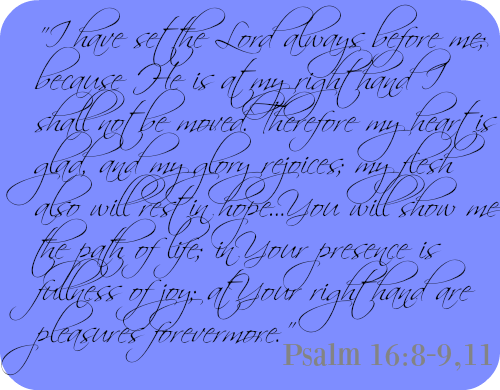 "I have set the Lord always before me;
because He is at my right hand I
shall not be moved. Therefore my heart is
glad, and my glory rejoices; my flesh
also will rest in hope...You will show me
the path of life; in Your presence is
fullness of joy; at Your right hand are
pleasures forevermore."
Psalm 16:8-9,11